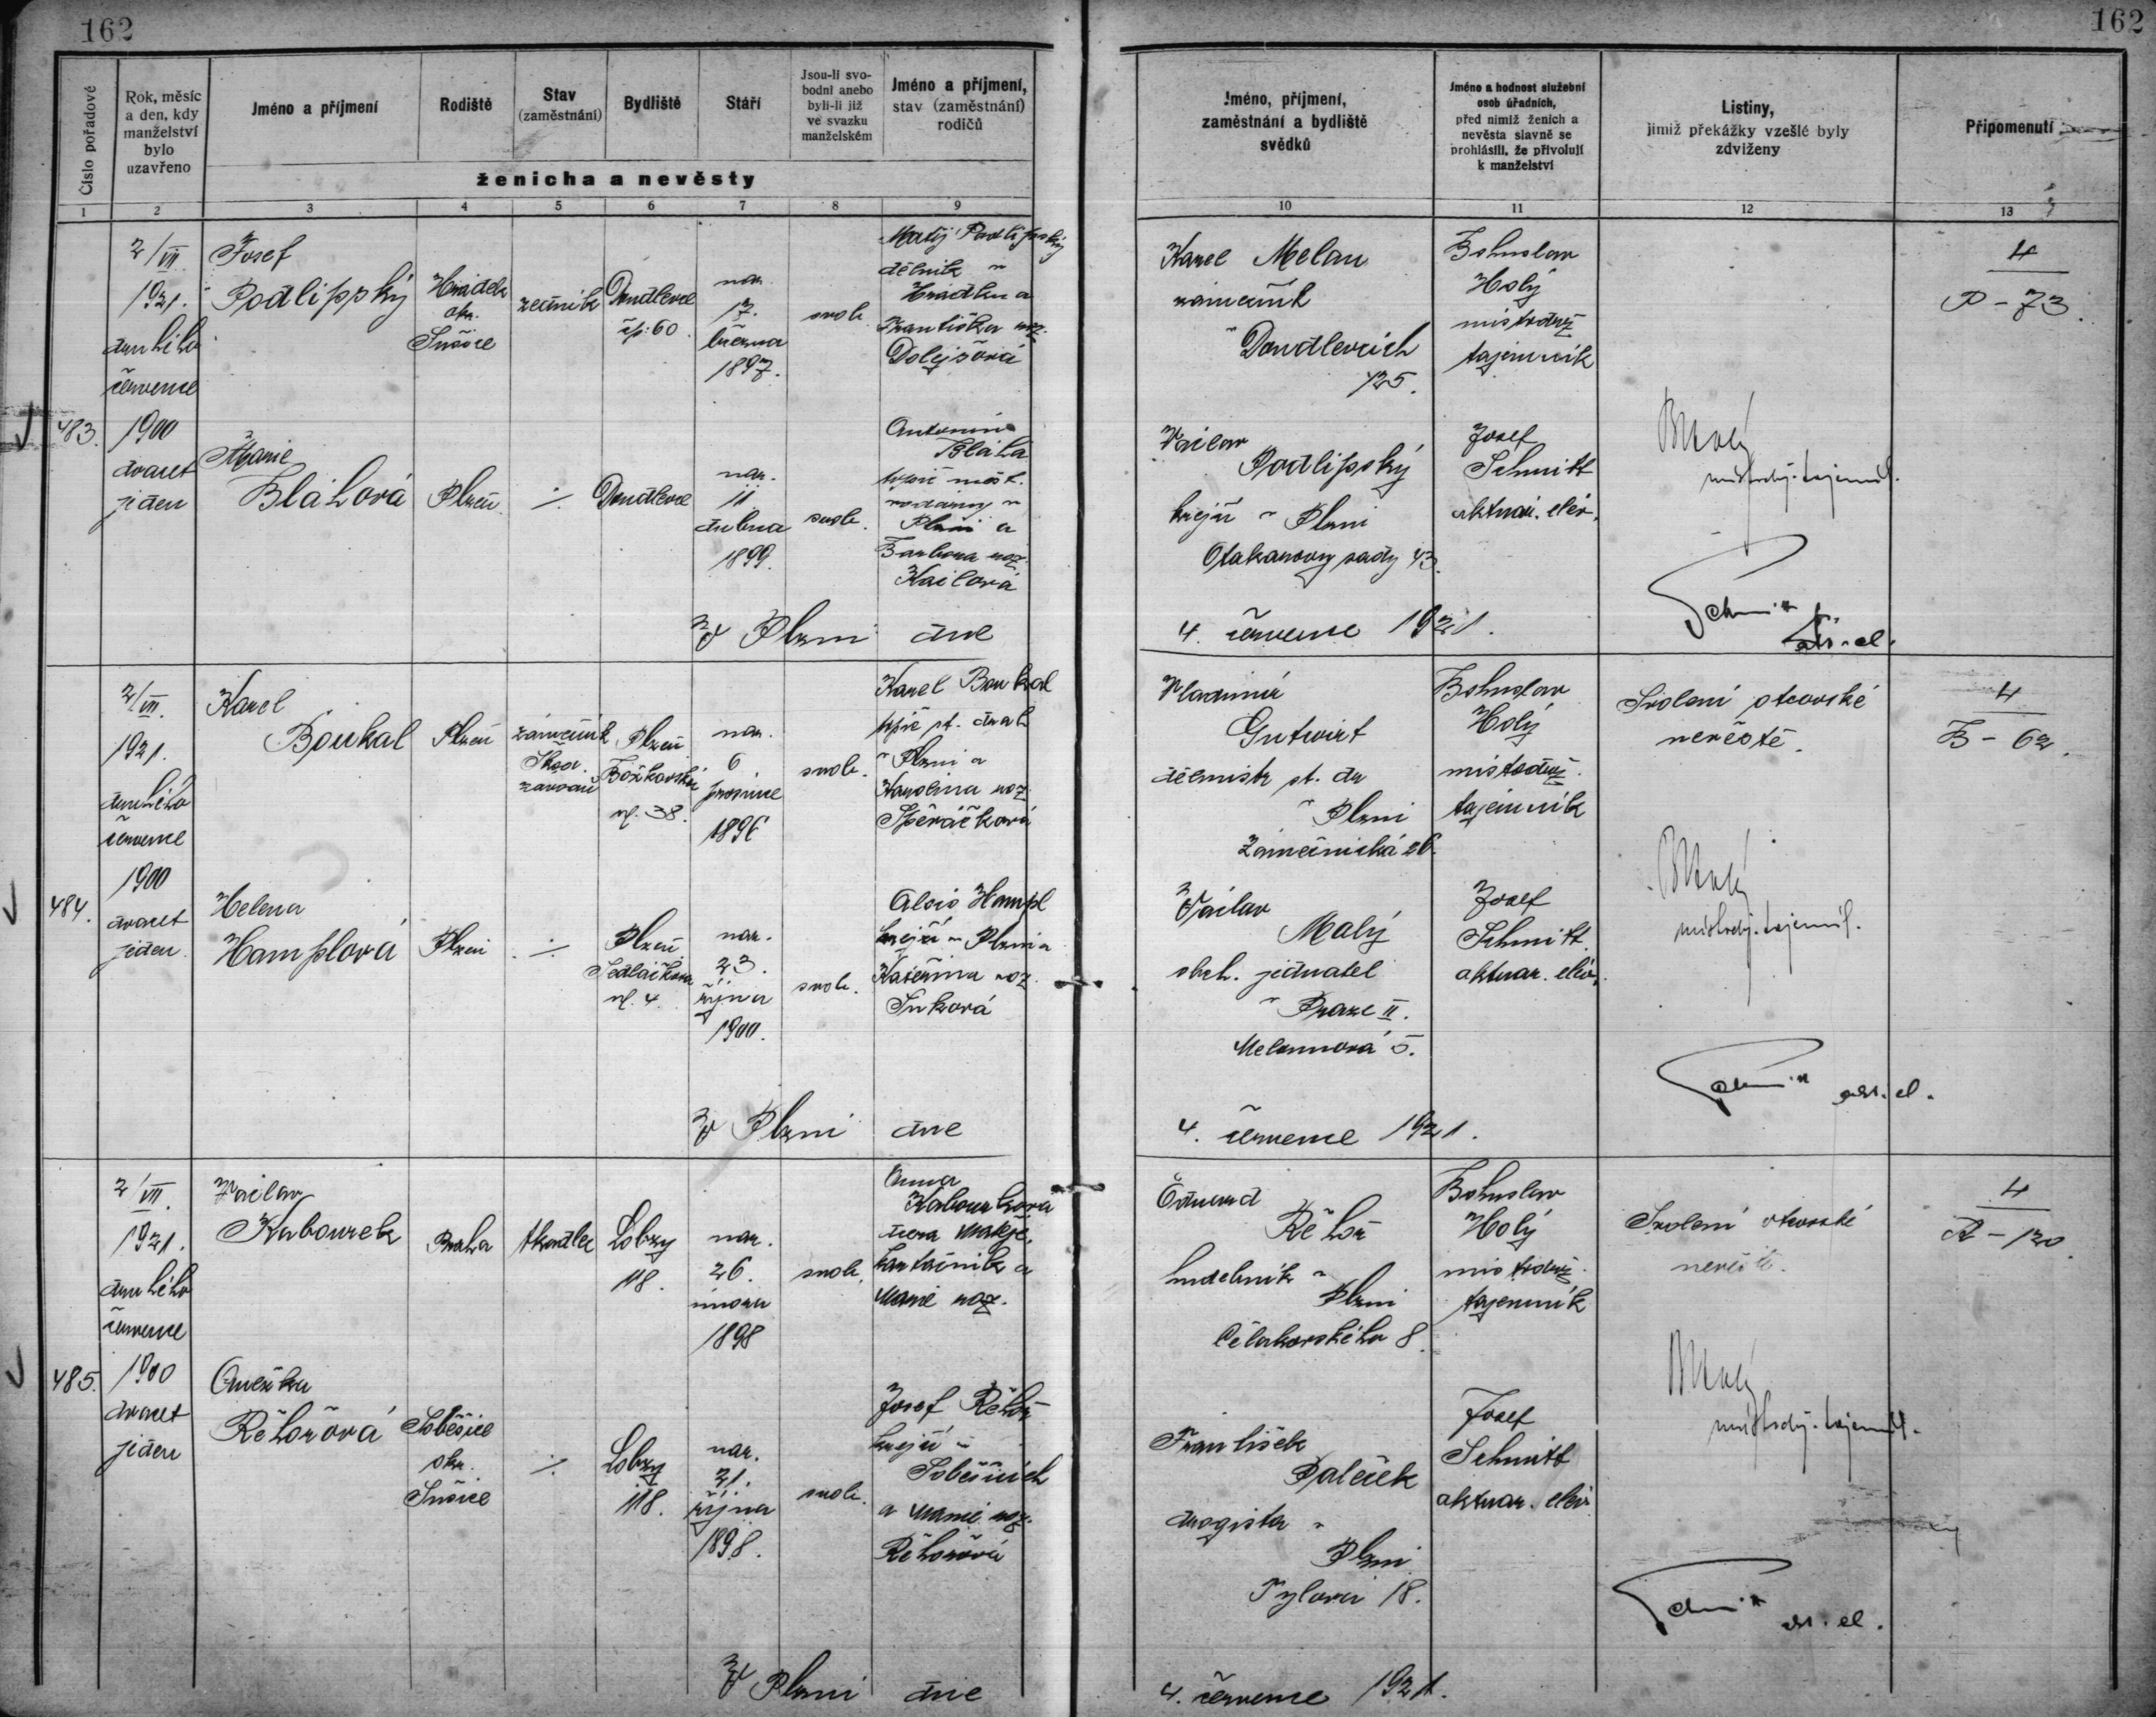 162
162
Číslo pořadové
Rok, měsíc
a den, kdy
manželství
bylo
uzavřeno
Jméno a příjmení
Rodiště
Stav
(zaměstnání)
Bydliště
Stáří
Jsou-li svo-
bodni anebo
byli-li již
ve svazku
manželském
Jméno a příjmení,
stav (zaměstnání)
rodičů
ženicha a nevěsty
Jméno, příjmení,
zaměstnání a bydliště
svědků
Jméno a hodnost služební
osob úřadních,
před nimiž ženich a
nevěsta slavně se
prohlásili, že přivolují
k manželství
Listiny,
jimiž překážky vzešlé byly
zdviženy
Připomenutí
1 2 3 4 5 6 7 8 9 10 11 12 13
483.
2/VII.
1921.
druhého
července
1900
dvacet
jeden
Josef
Podlipský
Hrádek
okr.
Sušice
zedník
Doudlevce
čp. 60.
nar.
17.
března
1897.
svob.
Matěj Podlipský
dělník v
Hrádku a
Františka roz.
Dolejšová
Marie
Bláhová
Plzeň
÷
Doudlevce
nar.
11
dubna
1899.
svob.
Antonín
Bláha
zříz. měst.
v
Plzni a
Barbora roz.
Kailová
Karel Melan
zámečník
v Doudlevcích
125.
Václav
Podlipský
krejčí v Plzni
Otakarovy sady 43.
Bohuslav
Holý
místodrž.
tajemník
Josef
Schmitt
aktuár. elév.
BHolý
místodrž. tajemník.
Schmitt
akt. el.
4
P - 73.
V Plzni dne
4. července 1921.
484.
2/VII.
1921.
druhého
července
1900
dvacet
jeden.
Karel
Boukal
Plzeň
zámečník
Škod.
závodů
Plzeň
Božkovská
ul. 38.
nar.
6
prosince
1896
svob.
Karel Boukal
zříz. st. drah
v Plzni a
Karolina roz.
Speráčková
Helena
Hamplová
Plzeň
÷
Plzeň
Sedláčkova
ul. 4.
nar.
23.
října
1900.
svob.
Alois Hampl
krejčí v Plzni a
Kateřina roz.
Suková
Vladimír
Gutwirt
dělmistr st. dr.
v Plzni
Zámečnická 26.
Václav
Malý
obch. jednatel
v Praze II.
Melounová 5.
Bohuslav
Holý
místodrž.
tajemník
Josef
Schmitt
aktuar. elév.
Svolení otcovské
nevěstě.
BHolý
místodrž. tajemník.
Schmitt akt. el.
4
B - 62.
V Plzni dne
4. července 1921.
485.
2/VII.
1921.
druhého
července
1900
dvacet
jeden
Václav
Kabourek
Praha
Lobzy
118.
nar.
26.
února
1898
svob.
Anna
Kabourková
dcera Matěje,
kartáčník a
Marie roz.
Anežka
Řehořová
Soběšice
okr.
Sušice
÷
Lobzy
118.
nar.
21.
října
1898.
svob.
Josef Řehoř
krejčí v
Soběšicích
a Marie roz.
Řehořová
Eduard
Řehoř
hudebník v
Plzni
Čelakovského 8.
František
Paleček
drogista v
Plzni
Tylova 18.
Bohuslav
Holý
místodrž.
tajemník
Josef
Schmitt
aktuar. elév
Svolení otcovské
nevěstě.
BHolý
místodrž. tajemník.
Schmitt akt. el.
4
A - 120.
V Plzni dne
4. července 1921.